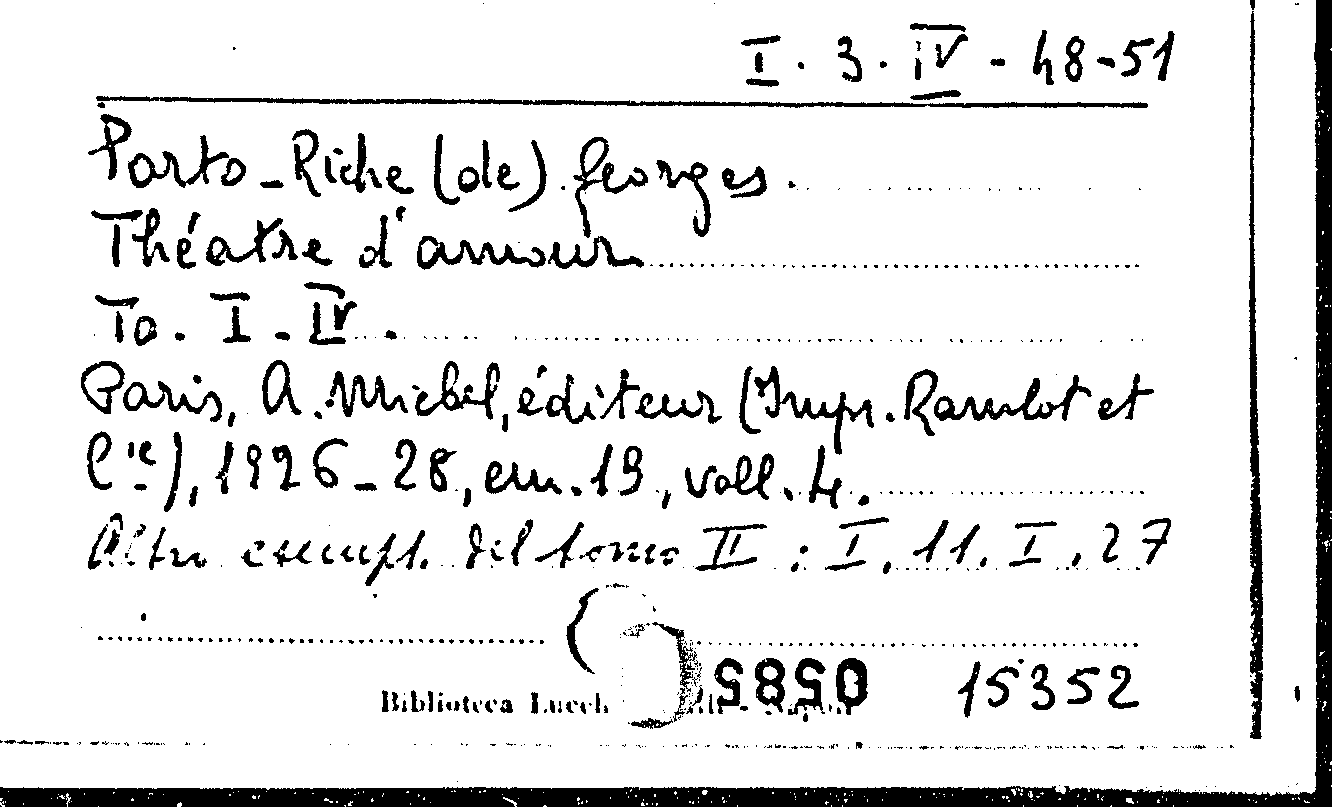 I. 3. IV - 48-51
Porto-Riche (de) Georges.
Théatre d'amour
To. I - IV.
Paris, A. Michel, éditeur (Impr. Ramlot et
Cie), 1926-28, cm. 19, voll. 4.
Altro esempl. del tomo II : I. 11. I. 27
15352
Biblioteca Lucch